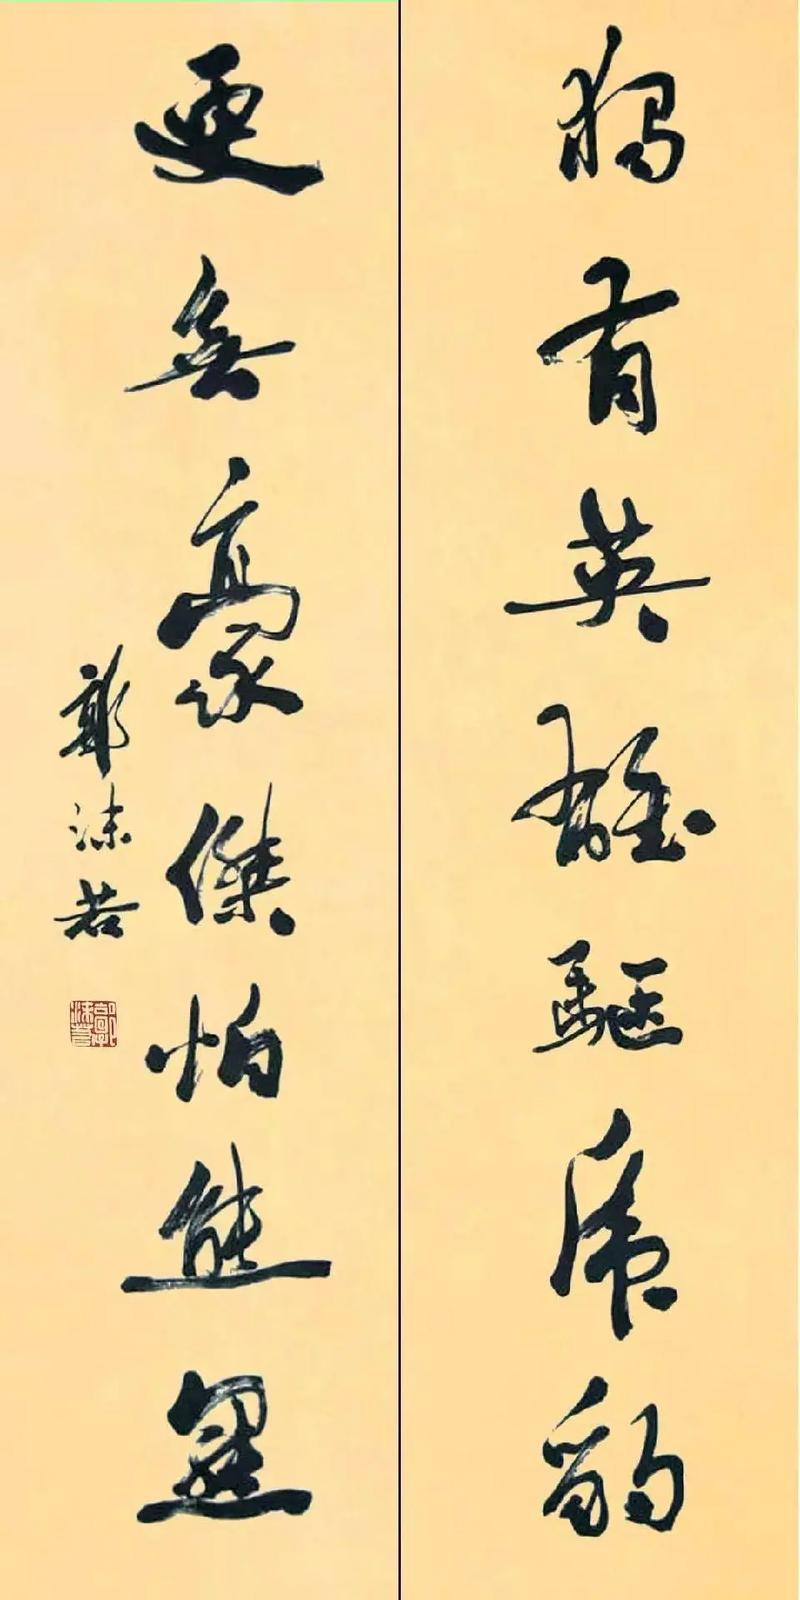 獨有英雄驅虎豹
更無豪傑怕熊羆
郭沫若
郭沫若